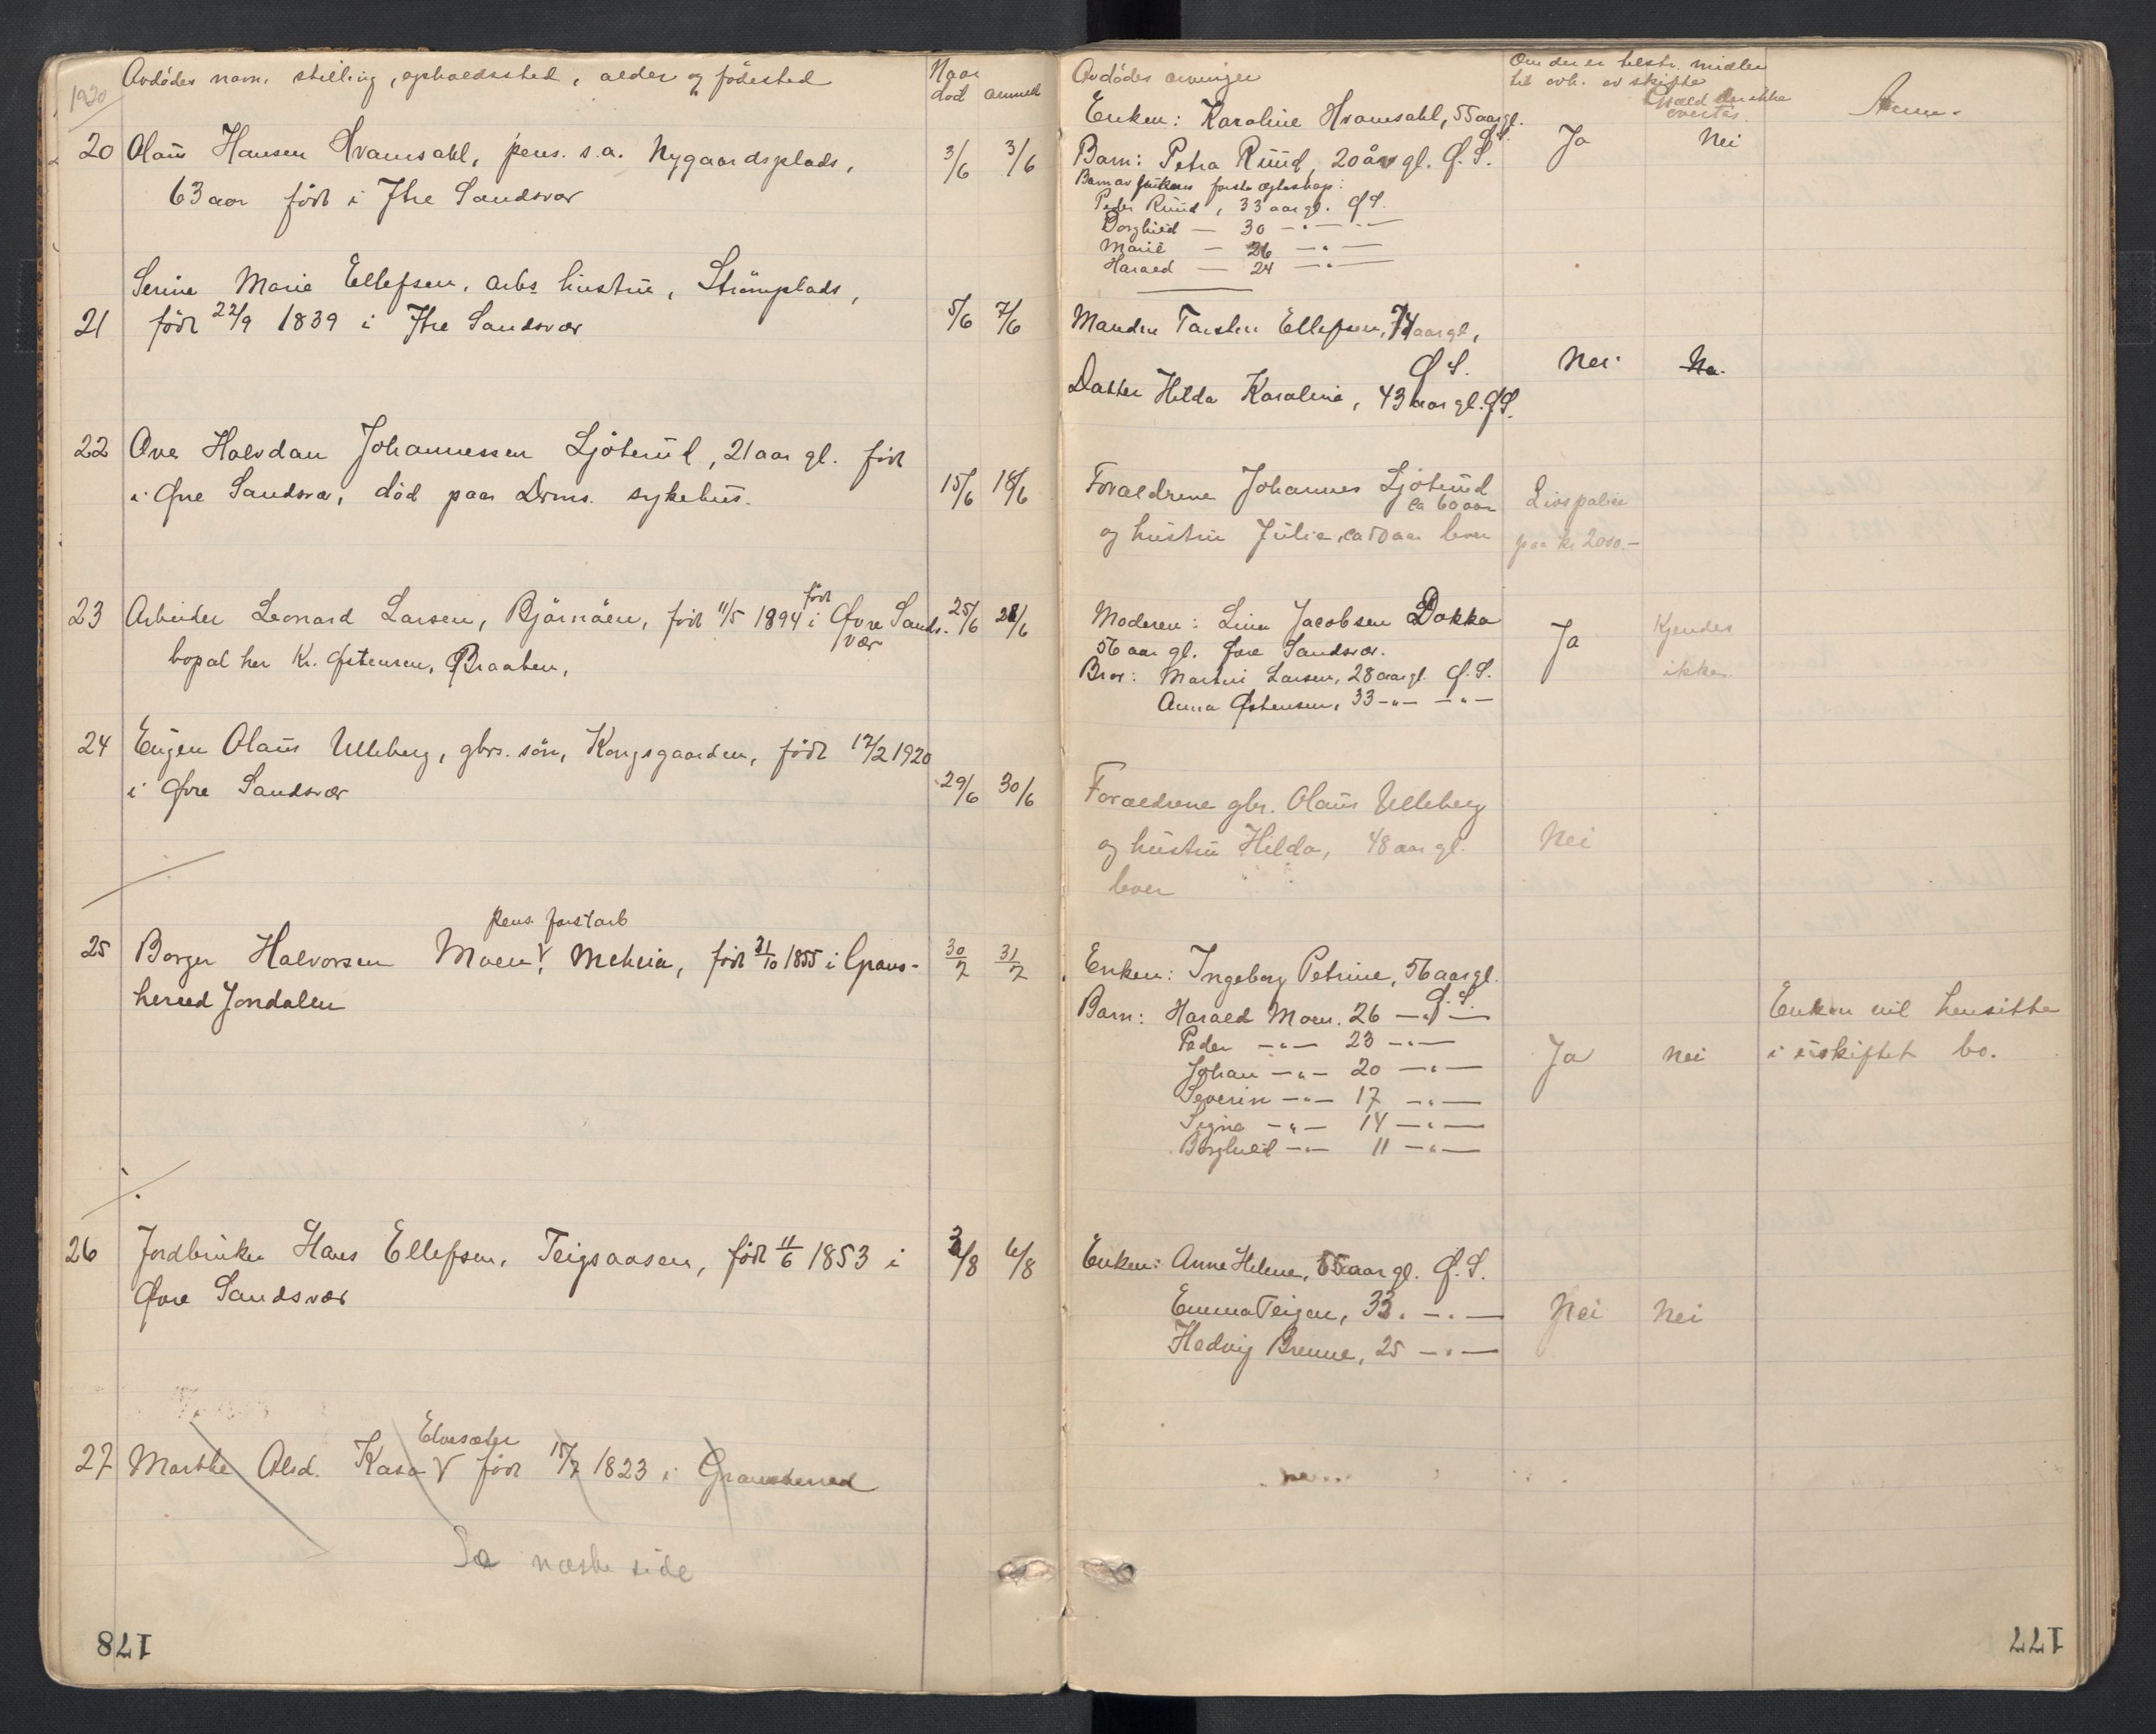 1920
Avdödes navn, stilling, opholdssted, alder og födested
Naar
död anmeldt
20 Olaus Hansen Hvamsahl, pens. s.a. Nygaardsplads, 3/6 3/6
63 aar født i Ytre Sandsvær
Serine Marie Ellefsen, arbs hustru, Strömplads,
21 född 22/9 1839 i Ytre Sandsvær 5/6 7/6
22 Ove Halvdan Johannessen Ljöterud, 21 aar gl. född
i Øvre Sandsvær, död paa Drms. sykehus. 15/6 18/6
född
23 Arbeider Leonard Larsen, Björnåen, född 11/5 1894 i Øvre Sands- 25/6 28/6
vær
bopæl her Kr. Østensen, Braaten,
24 Eugen Olaus Ulleberg, gbrs. sön, Kongsgaarden, född 12/2 1920
i Øvre Sandsvær 29/6 30/6
pens. forstarb
25 Borger Halvorsen Moen V, Meheia, född 31/10 1855 i Grans- 30/7 31/7
herred Jondalen
26 Jordbruker Hans Ellefsen, Teigsaasen, född 11/6 1853 i 3/8 6/8
Øvre Sandsvær
Elvesæter
27 Marthe Olsd. Kasa V född 15/7 1823 i Gransherred
Se næste side
178
Avdödes arvinger
Om der er tilstr. midler
til avh. av skifte
Gjæld der ikke
overtas.
Anm.
Enken: Karoline Hvamsahl, 55 aar gl.
Ø.S.
Barn: Petra Ruud, 20 år gl. Ø.S. Ja Nei
Barn av enkens første egteskap:
Peder Ruud, 33 aar gl. ØS.
Borghild — 30 — " —
Marie — 26 — " —
Harald — 24 — " —
Manden Torsten Ellefsen, 74 aar gl,
Ø S. Nei Na.
Datter Hilda Karoline, 43 aar gl. ØS.
Forældrene Johannes Ljöterud
ca 60 aar
Livspolise
og hustru Julie, ca 50 aar lever paa kr 2000.—
Moderen: Lina Jacobsen Dokka
56 aar gl. Øvre Sandsvær. Ja Kjendes
ikke
Bror: Martin Larsen, 28 aar gl. Ø.S.
Anna Østensen, 33 —"— —"—
Forældrene gbr. Olaus Ulleberg
og hustru Hilda, 48 aar gl. Nei
lever
Enken: Ingeborg Petrine, 56 aar gl.
Ø.S.
Barn: Harald Moen. 26 —"—
Peder —"— 23 —"—
Johan —"— 20 —"—
Severin —"— 17 —"—
Signe —"— 14 —"—
Borghild —"— 11 —"—
Ja Nei
Enken vil hensitte
i uskiftet bo.
Enken: Anne Helene, 65 aar gl. Ø.S.
Emma Teigen, 33. —"— Nei Nei
Hedvig Brenne, 25 —"—
177